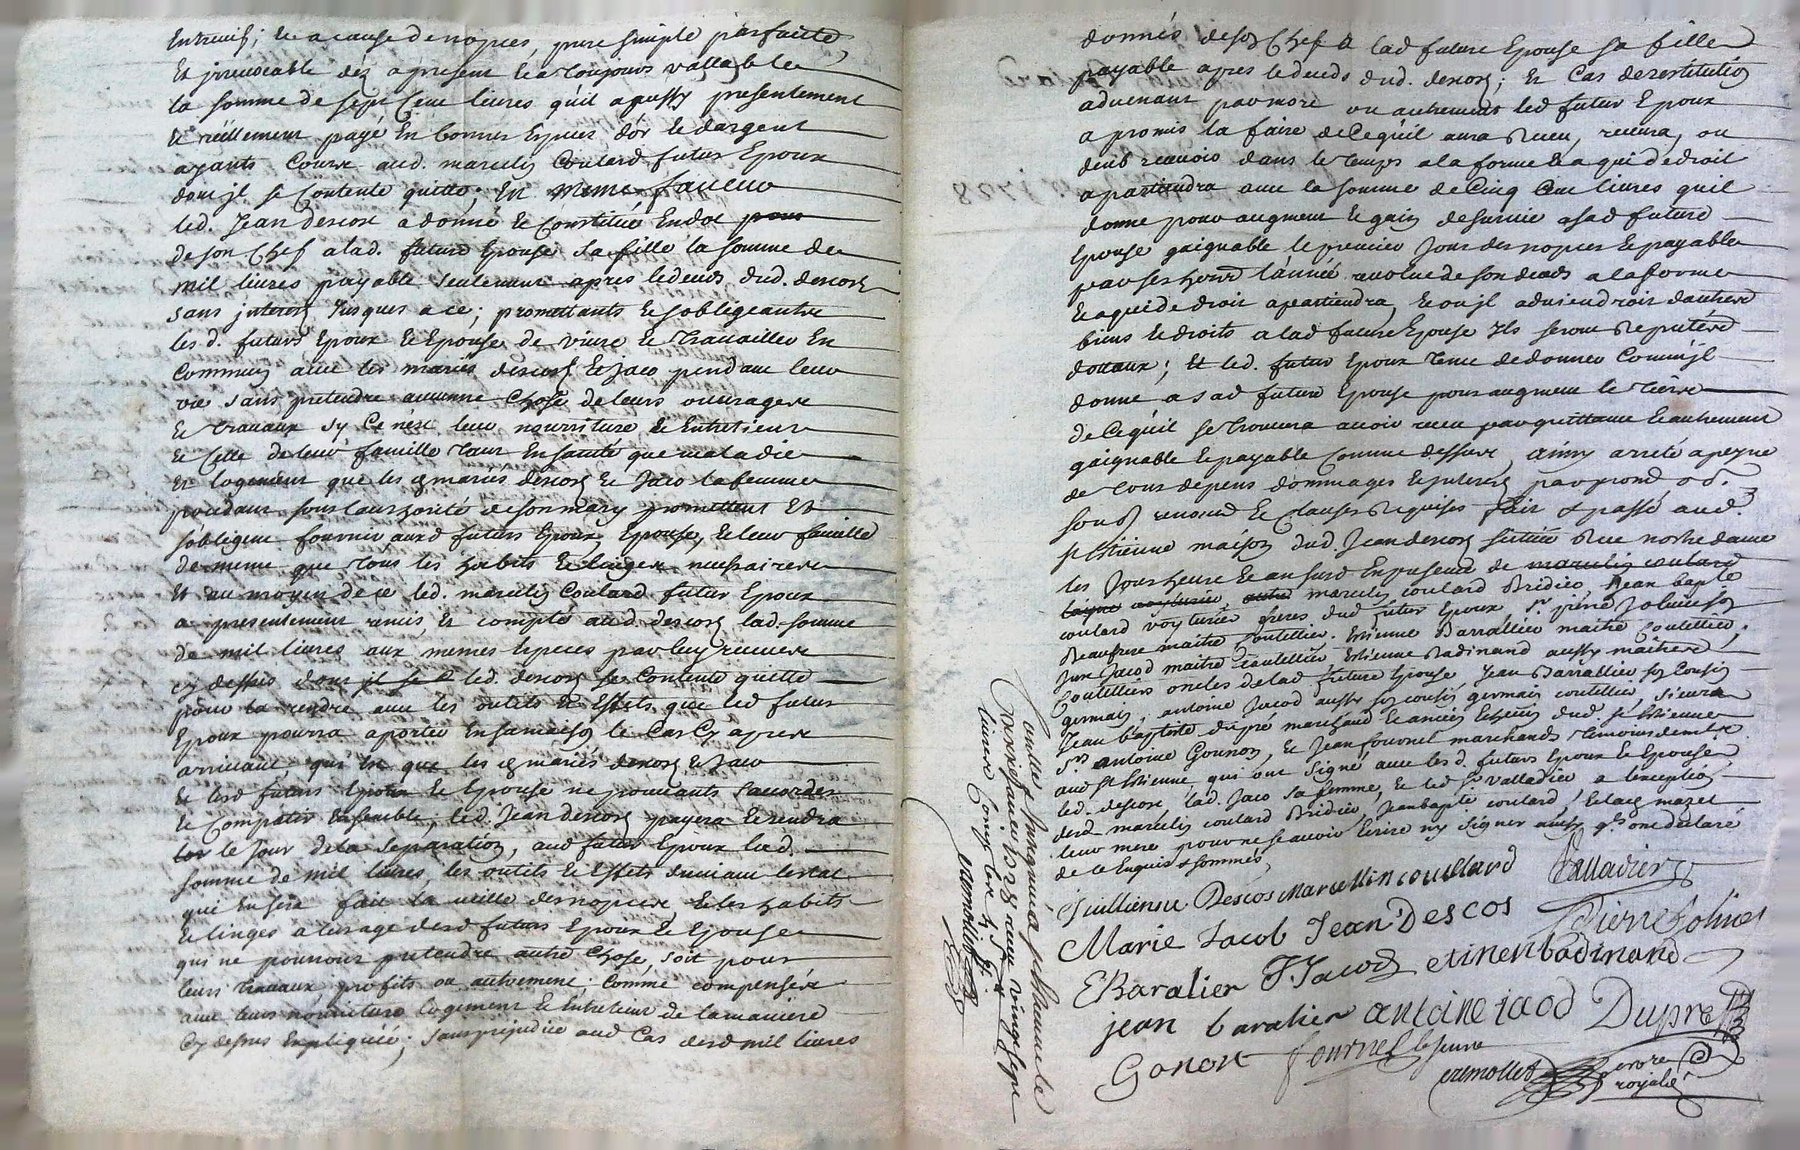 Entrevifs; et a cause de nopces, pure simple parfaitte,
Et jrrevocable déz apresent et a toujours vallable
la somme de sept Cent livres qu'il a pussy presentement
et réellement payé En bonnes Especes d'or et dargent
ayants Cours aud. marcelin Coulard futur Epoux
dont jl se Contente quitte; En meme faveur
led. Jean descos a donné et Constitué En dot pour
de son Chef a lad. future Epouse sa fille la somme de
mil livres payable seulement apres le deceds dud. descos
sans jnterets Jusques a ce; promettants et sobligeants
lesd. futurs Epoux et Epouse de vivre et travailler En
Commun avec les mariés descos et Jaco pendant leur
vie sans pretendre aucunne Chose de leurs ouvrages
et travaux sy Ce n'est leur nourriture et Entretiens
et Celle de leur famille tant En santé que maladie
Et logement que les mariés descos et Jaco la femme
procedant sous l'authorité de son mary promettent Et
sobligent fournir auxd futurs Epoux, Epouse, et leur famille
de meme que tous les habits et linges necessaires
Et au moyen de ce led. marcelin Coulard futur Epoux
a presentement remis et compté aud. descos lad. somme
de mil livres aux memes Especes par luy receues
cy dessus dont jl se led. descos se Contente quitte
pour la rendre avec les outils et Effets que led futur
Epoux pourra aporter En sa maison le Cas Cy apres
arrivant, qui Est que les mariés descos et Jaco
et lesd futurs Epoux et Epouse ne pouvants saccorder
et Compatir Ensemble, led. Jean descos payera et rendra
lors le jour de la separation, aud futur Epoux lad.
somme de mil livres, les outils et Effets suivant lestat
qui En sera fait la veille des nopces et les habits
et linges a lusage desd futurs Epoux et Epouse
qui ne pourront pretendre autre Chose soit pour
leurs travaux profits ou autrement, Comme compensés
avec leurs nourriture logement et Entretien de la maniere
Cy dessus Expliquée; sans prejudice aud Cas desd mil livres
donnés de son Chef a lad future Epouse sa fille
payable apres le deceds dud. descos; Et Cas de restitution
advenant par mort ou autrement led futur Epoux
a promis la faire de Ce qu'il aura Receu, recevra, ou
deub recevoir dans le temps a la forme et a qui de droit
apartiendra avec la somme de Cinq Cent livres qu'il
donne pour augment et gain de survie a sad future
Epouse gaignable le premier Jour des nopces et payable
par ses hoirs l'année revolue de son deceds a la forme
et a qui de droit apartiendra, et ou jl adviendroit d'autres
biens et droits a lad future Epouse Ils seront Reputés
dotaux; Et led. futur Epoux tenu de donner Comme jl
donne a sad future Epouse pour augment le tiers
de Ce qu'il se trouvera avoir receu par quittance et autrement
gaignable et payable Comme dessus, ainsy arreté a peyne
de tous depens dommages et jnterets par promd ob.
soud renond et Clauses Requises fait & passé aud.
st Etienne maison dud Jean descos scituée Rue nostre dame
les Jour heure et an susd En presence de marcelin coulard
marcelin coulard Bridier, Jean bapte
coulard voyturier freres dud futur Epoux, sr. pierre Johnes son
Beaufrere maitre Coutellier. Estienne Barrallier maitre Coutellier,
Jacod maitre Coutellier Estienne Badinand aussy maitres
Coutelliers oncles de lad future Epouse, Jean Barrallier son Cousin
germain, antoine Jacod aussy son cousin germain coutellier, sieurs
Jean baptiste dupré marchand et ancien Echevin dud st Estienne
srs antoine Gounon, et Jean fournel marchands temoins demeurts
aud st Estienne qui ont signé avec lesd. futurs Epoux et Epouse,
led. descos, lad. Jaco sa femme, et led sr. valladier a lexception
desd marcelin coulard Bridier, Jean bapte coulard, Et lad mazet
leur mere pour ne scavoir Ecrire ny signer ainsy qls ont declaré
de ce Enquis & sommés
Guillienne Descos Marcellin coullard Valladier
Marie Jacob Jean Descos Pierre Johnes
E Baralier J Jacod etinen badinand
jean baralier antoine iacod Dupre
Gonon fournel le jeune
cremollet nore royale
Controllé & Insinué a st Etienne le
livres Compris les 4 s. p. l.
cremollet